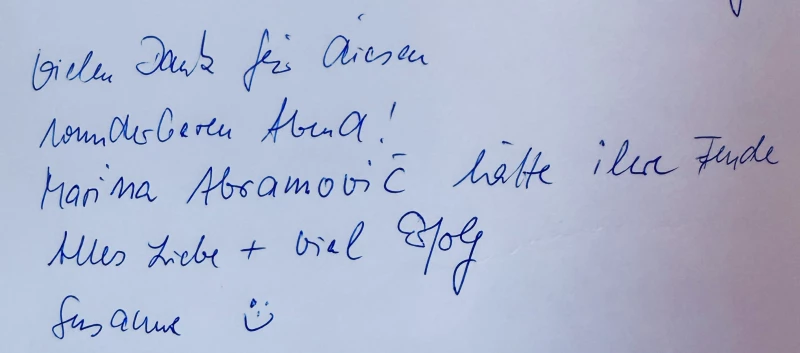 Vielen Dank für diesen
wunderbaren Abend!
Marina Abramović hätte ihre Freude
Alles Liebe + viel Erfolg
Susanne ☺